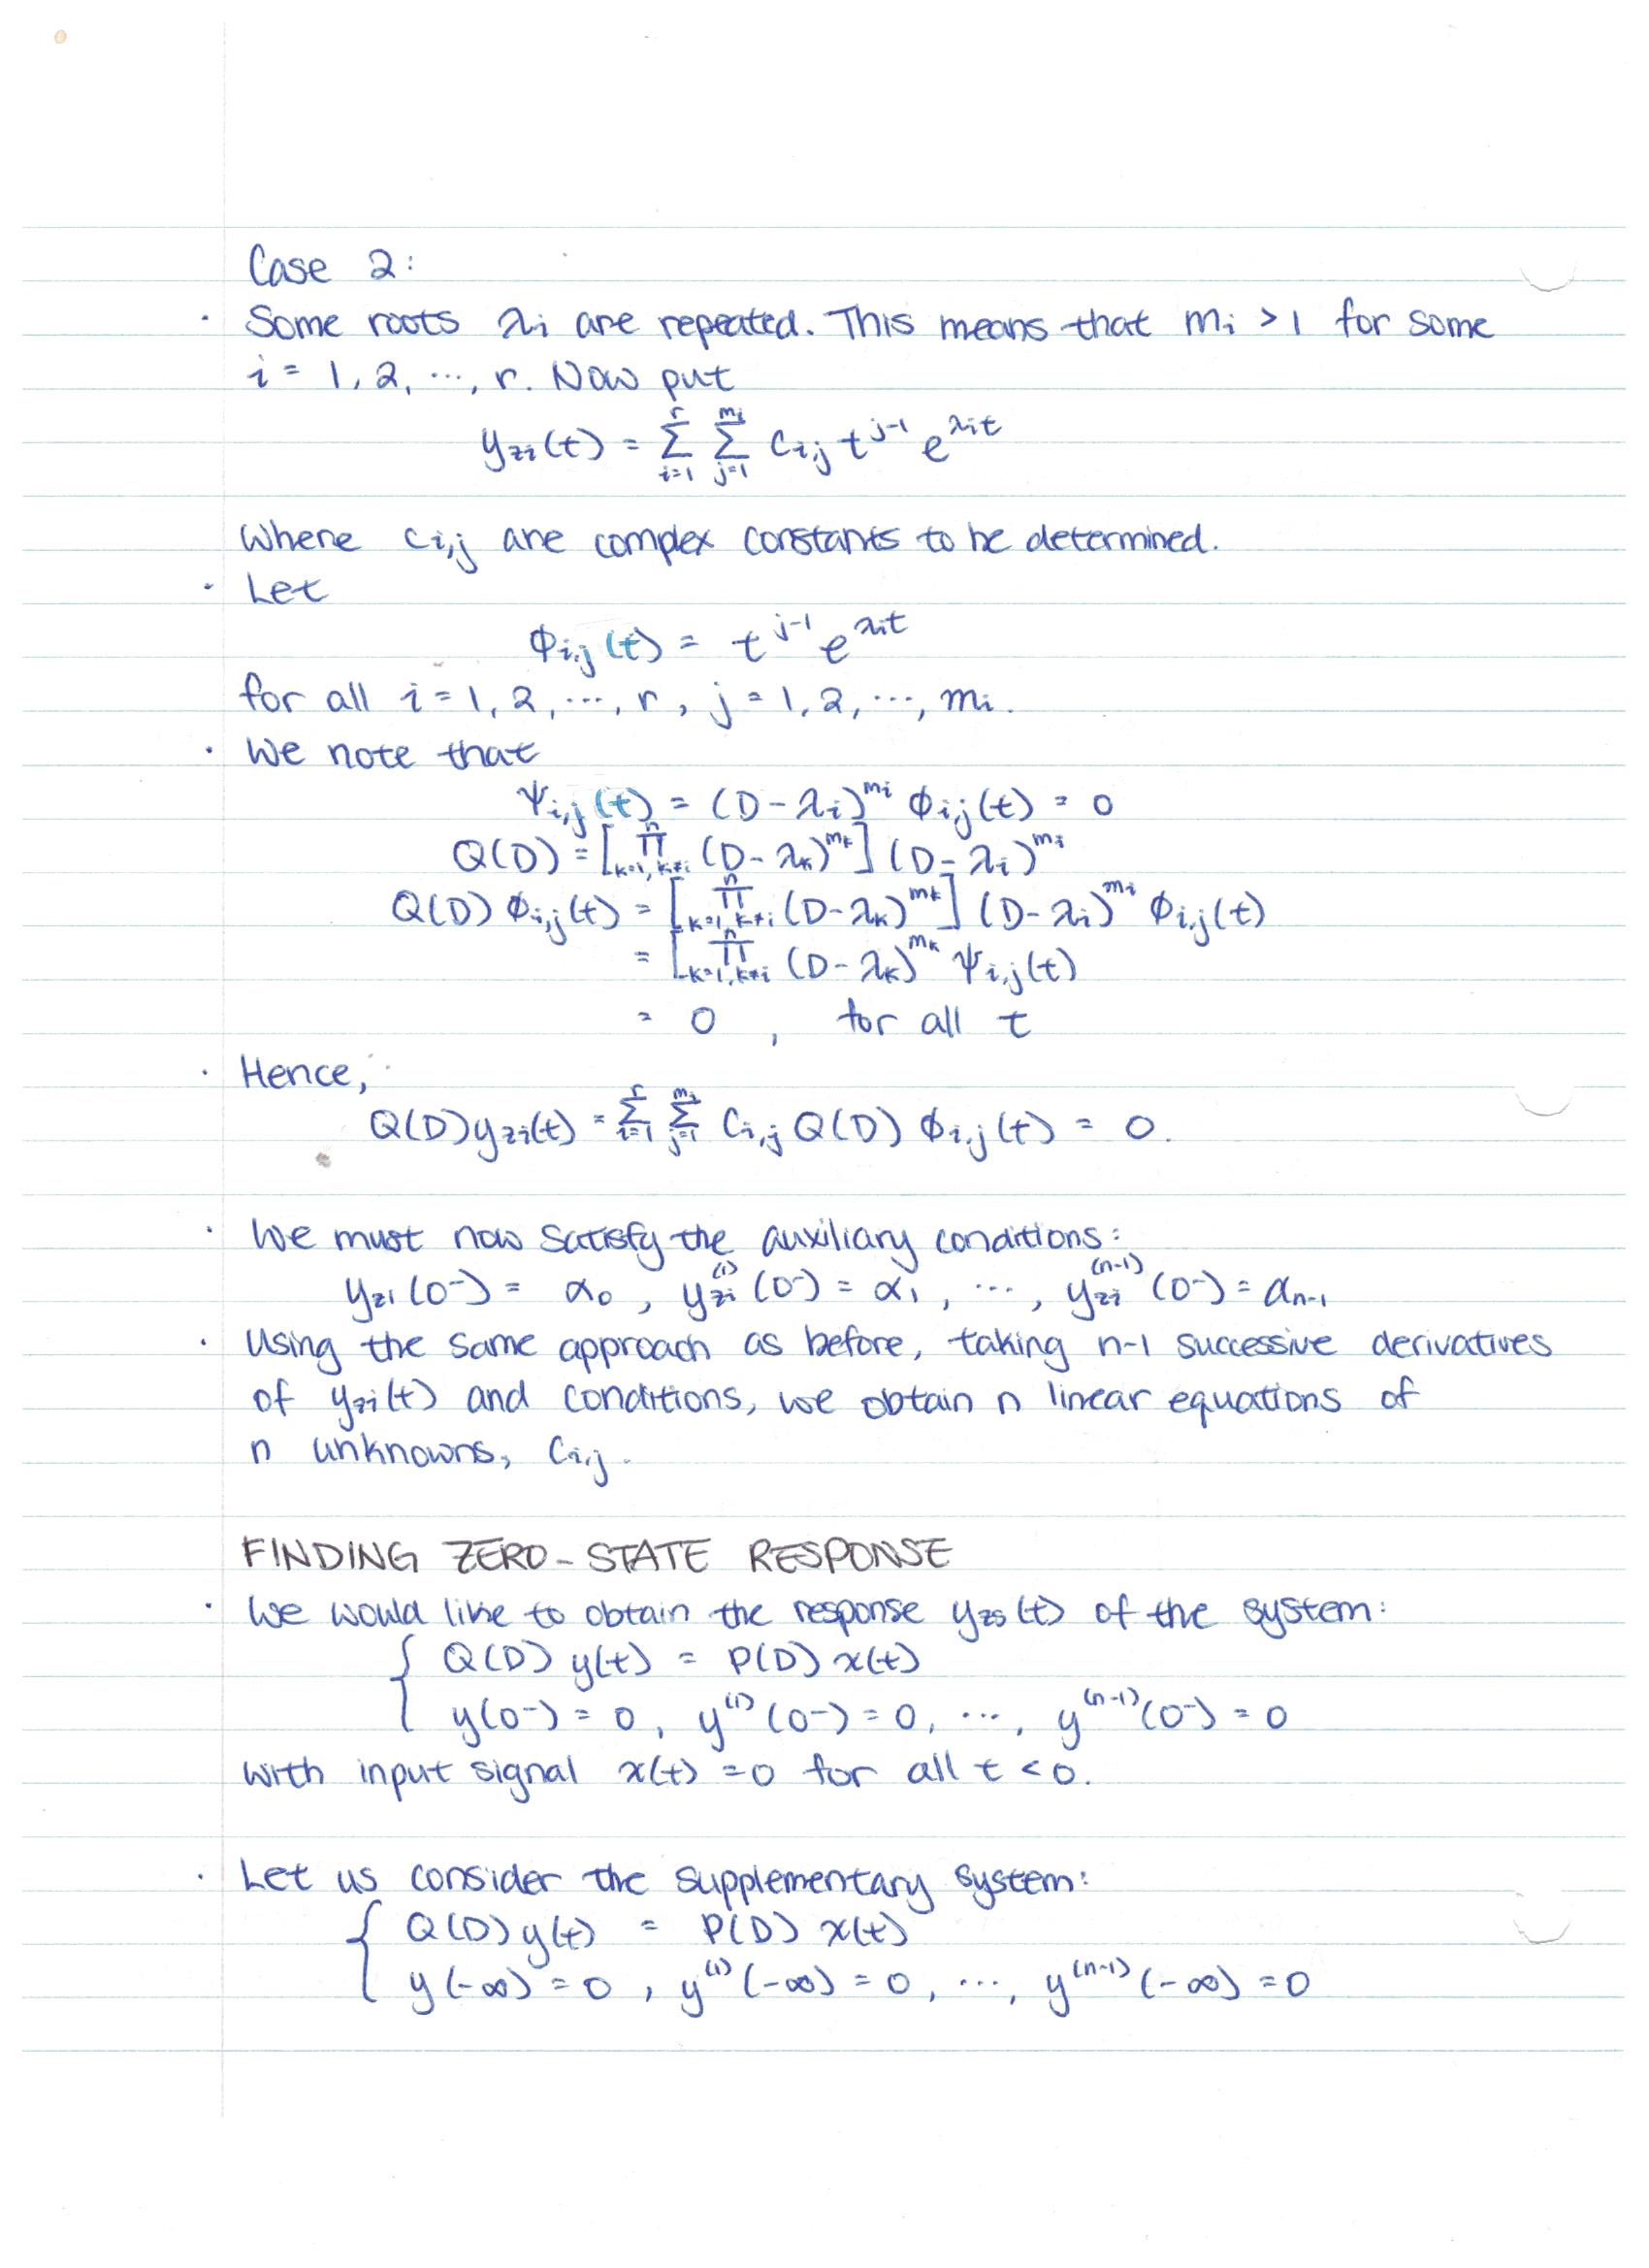 Case 2:
· Some roots λi are repeated. This means that mi > 1 for some
i = 1, 2, ..., r. Now put
yzi(t) = Σ_{i=1}^{r} Σ_{j=1}^{mi} Ci,j t^{j-1} e^{λit}
Where ci,j are complex constants to be determined.
· Let
φi,j(t) = t^{j-1} e^{λit}
for all i = 1, 2, ..., r, j = 1, 2, ..., mi.
· We note that
Ψi,j(t) = (D - λi)^{mi} φi,j(t) = 0
Q(D) = [Π_{k=1, k≠i}^{n} (D - λk)^{mk}] (D - λi)^{mi}
Q(D) φi,j(t) = [Π_{k=1, k≠i}^{n} (D - λk)^{mk}] (D - λi)^{mi} φi,j(t)
= [Π_{k=1, k≠i}^{n} (D - λk)^{mk} Ψi,j(t)
= 0 , for all t
· Hence,
Q(D)yzi(t) = Σ_{i=1}^{r} Σ_{j=1}^{mi} Ci,j Q(D) φi,j(t) = 0.
· We must now satisfy the auxiliary conditions:
yzi(0-) = α0, yzi^{(1)}(0-) = α1, ..., yzi^{(n-1)}(0-) = αn-1
· Using the same approach as before, taking n-1 successive derivatives
of yzi(t) and conditions, we obtain n linear equations of
n unknowns, Ci,j.
FINDING ZERO-STATE RESPONSE
· We would like to obtain the response yzs(t) of the system:
{ Q(D) y(t) = P(D) x(t)
y(0-) = 0, y^{(1)}(0-) = 0, ..., y^{(n-1)}(0-) = 0
with input signal x(t) = 0 for all t < 0.
· Let us consider the supplementary system:
{ Q(D) y(t) = P(D) x(t)
y(-∞) = 0, y^{(1)}(-∞) = 0, ..., y^{(n-1)}(-∞) = 0